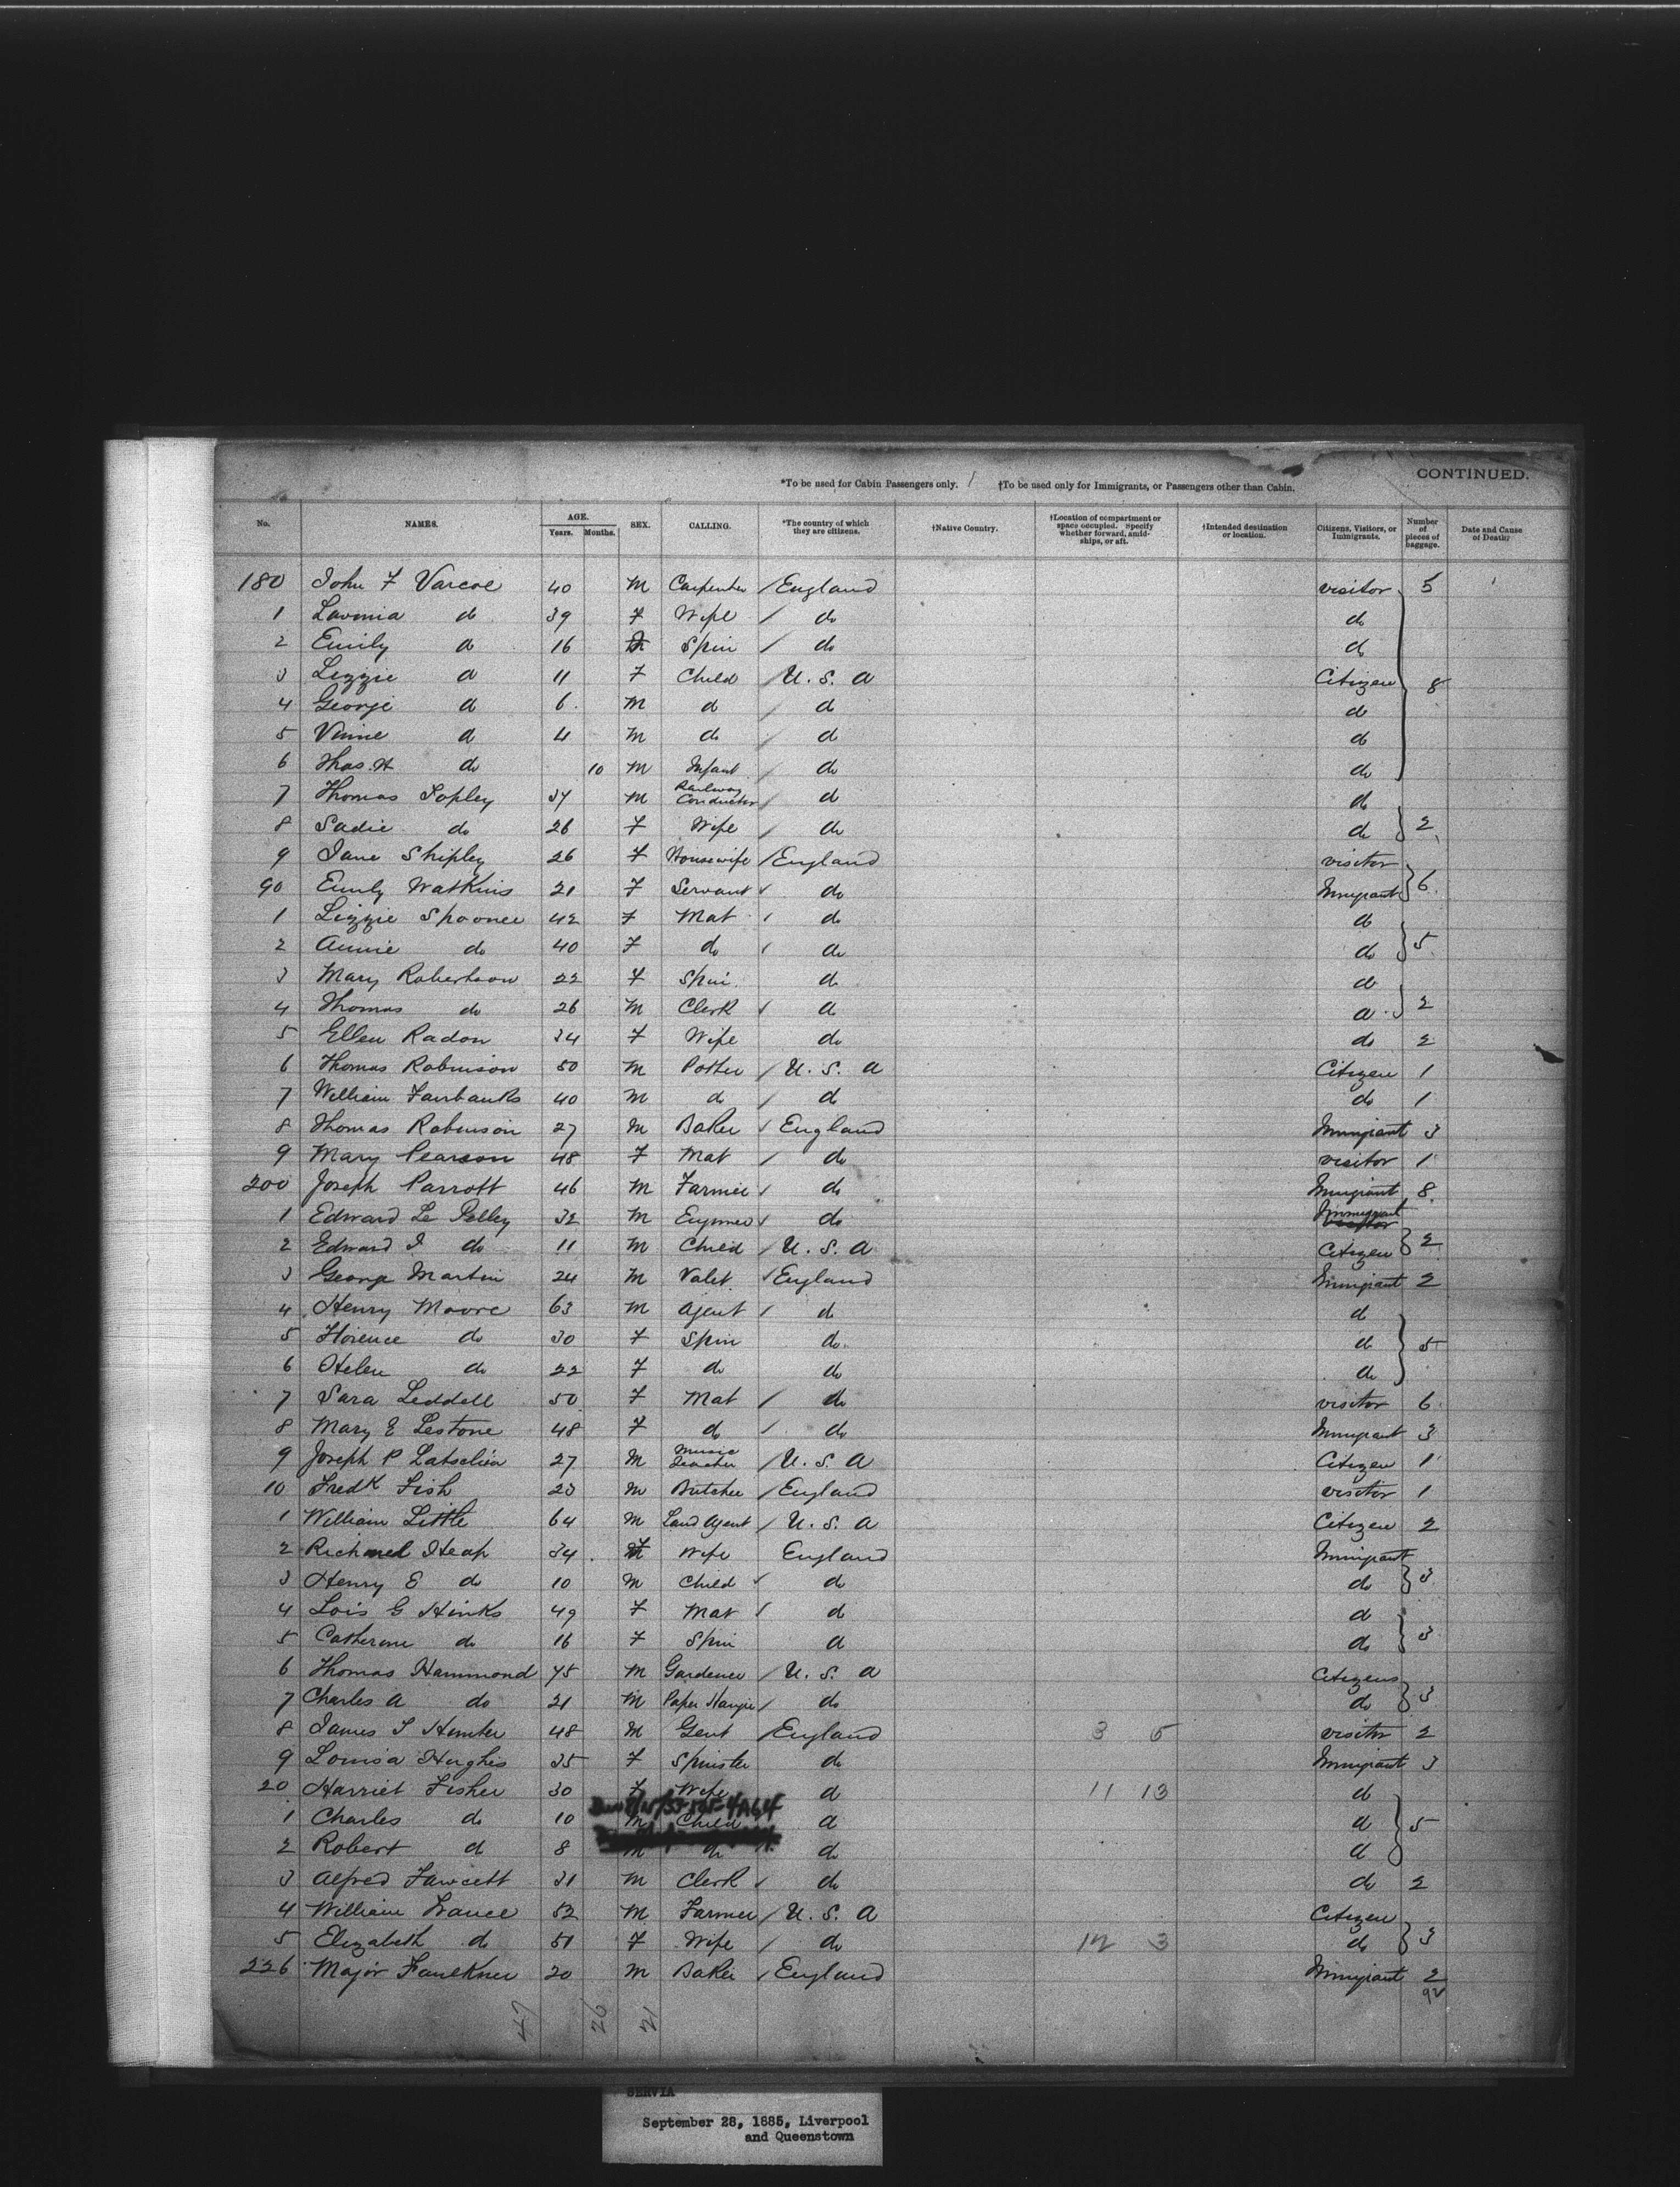 CONTINUED.
*To be used for Cabin Passengers only. †To be used only for Immigrants, or Passengers other than Cabin.
No. NAMES. AGE. Years. Months. SEX. CALLING. *The country of which they are citizens. †Native Country. †Location of compartment or space occupied. Specify whether forward, amidships, or aft. †Intended destination or location. Citizens, Visitors, or Immigrants. Number of pieces of baggage. Date and Cause of Death.
180 John F Varcoe 40 M Carpenter / England visitor 5
1 Lavinia do 39 F Wife / do do
2 Emily do 16 F Spin / do do
3 Lizzie do 11 F Child / U. S. A Citizen 8
4 George do 6 M do / do do
5 Vinnie do 4 M do / do do
6 Thos. H do 10 M Infant / do do
7 Thomas Topley 34 M Railway Conductor / do do
8 Sadie do 26 F Wife / do do 2
9 Jane Shipley 26 F Housewife / England visitor
90 Emily Watkins 21 F Servant do Immigrant 6
1 Lizzie Spooner 42 F Mat do do
2 Annie do 40 F do do do 5
3 Mary Robertson 22 F Spin do do
4 Thomas do 26 M Clerk do do 2
5 Ellen Radon 34 F Wife do do 2
6 Thomas Robinson 50 M Potter / U. S. A Citizen 1
7 William Fairbanks 40 M do / do do 1
8 Thomas Robinson 27 M Baker England Immigrant 3
9 Mary Pearson 48 F Mat / do visitor 1
200 Joseph Parrott 46 M Farmer do Immigrant 8
1 Edward Le Pelley 32 M Engineer do Immigrant
2 Edward J do 11 M Child / U. S. A Citizen 2
3 George Martin 24 M Valet England Immigrant 2
4 Henry Moore 63 M Agent do do
5 Florence do 30 F Spin do do 5
6 Helen do 22 F do do do
7 Sara Leddell 50 F Mat / do visitor 6
8 Mary E Lestone 48 F do do Immigrant 3
9 Joseph P 27 M Music Teacher / U. S. A Citizen 1
10 Fredk Fish 23 M Butcher / England visitor 1
1 William Little 64 M Land Agent / U. S. A Citizen 2
2 Heap 34 F Wife England Immigrant
3 Henry E do 10 M Child do do 3
4 Lois G Hinks 49 F Mat do do
5 Catherine do 16 F Spin do do 3
6 Thomas Hammond 45 M Gardener / U. S. A Citizens
7 Charles A do 21 M Paper Hanger / do do 3
8 James T Hunter 48 M Gent / England 3 5 visitor 2
9 Louisa Hughes 35 F Spinster do Immigrant 3
20 Harriet Fisher 30 F Wife do 11 13 do
1 Charles do 10 M Child do do 5
2 Robert do 8 M do do do
3 Alfred Fawcett 31 M Clerk do do 2
4 William France 52 M Farmer / U. S. A Citizen
5 Elizabeth do 51 F Wife / do 12 3 do 3
226 Major Faulkner 20 M Baker England Immigrant 2
92
47 26 21
SERVIA
September 28, 1885, Liverpool
and Queenstown